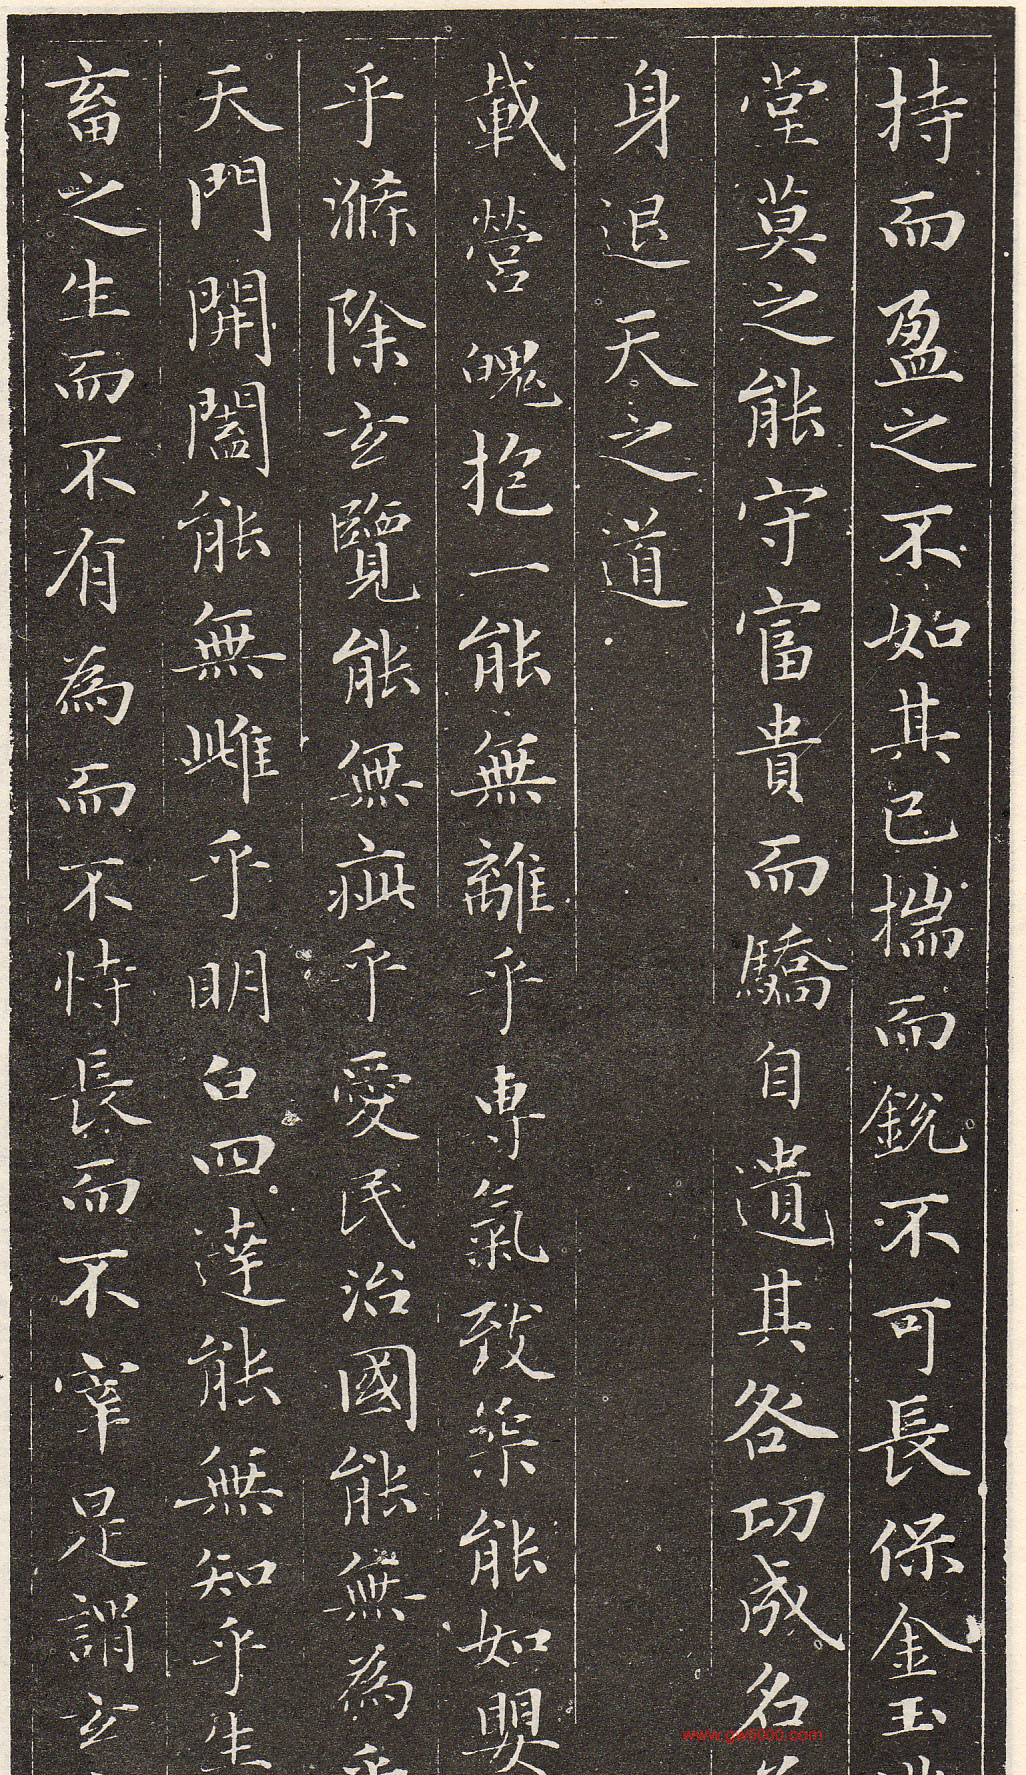 持而盈之不如其已揣而銳不可長保金玉
堂莫之能守富貴而驕自遺其咎功成名
身退天之道
載營魄抱一能無離乎專氣致柔能如嬰
乎滌除玄覽能無疵乎愛民治國能無為
天門開闔能無雌乎明白四達能無知乎生
畜之生而不有為而不恃長而不宰是謂玄
www.gw5000.com